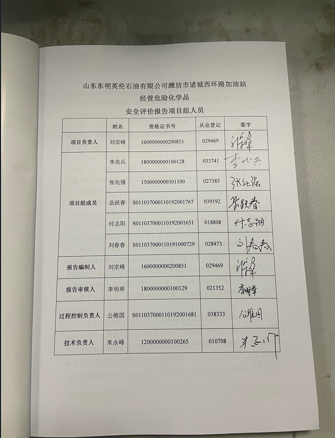 山东东明英伦石油有限公司潍坊市诸城西环路加油站
经营危险化学品
安全评价报告项目组人员
姓名 资格证书号 从业登记 签字
项目负责人 刘宗峰 1600000000200851 029469
李凤兵 1800000000100128 033741
张化强 1500000000301100 027385 张化强
项目组成员 岳跃春 S011037000110192001767 039192 岳跃春
付志阳 S011037000110192001651 018808 付志阳
刘春春 S011037000110191000729 028473 刘春春
报告编制人 刘宗峰 1600000000200851 029469
报告审核人 李明华 1800000000100129 021352 李明华
过程控制负责人 公维国 S011037000110192001681 038333 公维国
技术负责人 米永峰 1200000000100265 010708